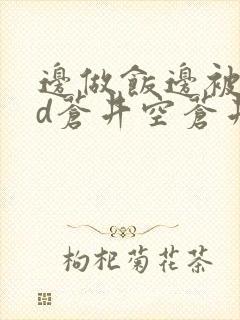 邊做飯邊被
d蒼井空蒼井
枸杞菊花茶